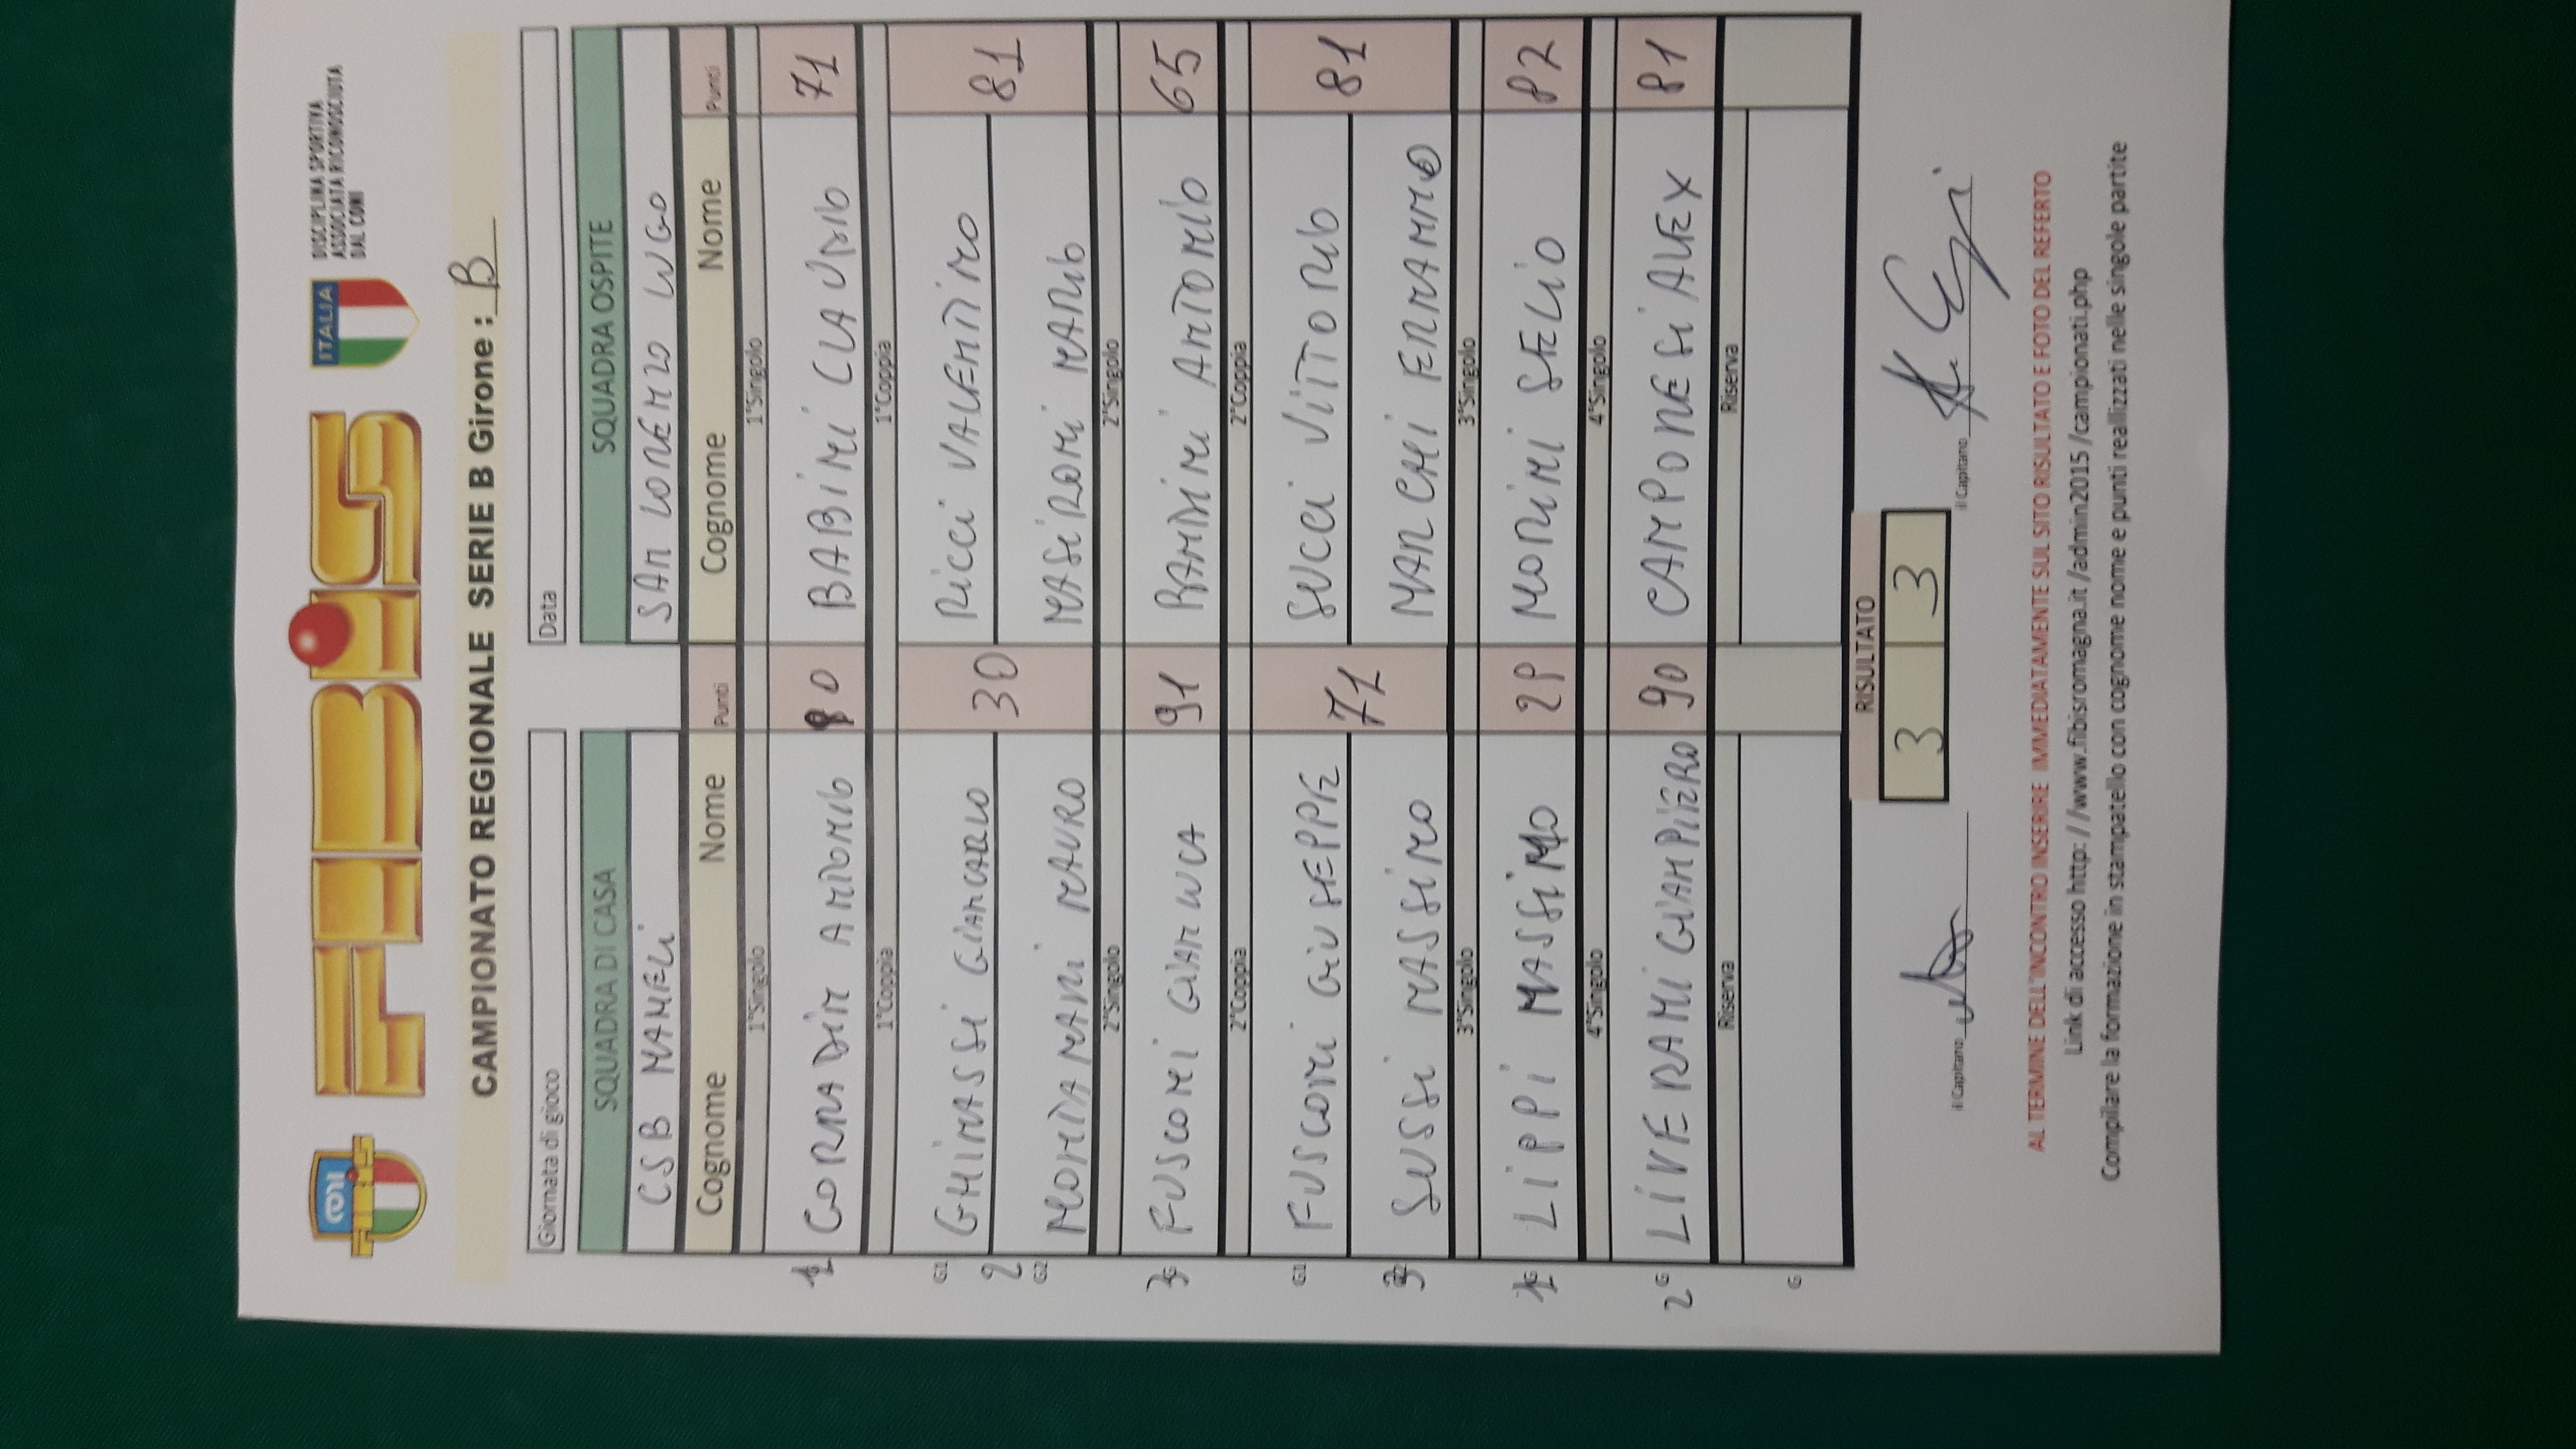 CONI
FIBiS
FIBiS
ITALIA
DISCIPLINA SPORTIVA
ASSOCIATA RICONOSCIUTA
DAL CONI
CAMPIONATO REGIONALE SERIE B Girone : B
Giornata di gioco Data
SQUADRA DI CASA SQUADRA OSPITE
CSB MAMELI SAN LORENZO LUGO
Cognome Nome Punti Cognome Nome Punti
1°Singolo 1°Singolo
1 CORRADIN ANTONIO 80 BABINI CLAUDIO 71
1°Coppia 1°Coppia
G1 GHINASSI GIANCARLO RICCI VALENTINO
2 30 81
G2 MONTANARI MAURO MASIRONI MARIO
2°Singolo 2°Singolo
3 FUSCONI GIANLUCA 91 RANDINI ANTONIO 65
2°Coppia 2°Coppia
G1 FUSCONI GIUSEPPE SUCCI VITTORIO
71 81
3 SUSSI MASSIMO MARCHI ERMANNO
3°Singolo 3°Singolo
1 LIPPI MASSIMO 28 MORINI SELIO 82
4°Singolo 4°Singolo
2 G LIVERANI GIAMPIERO 90 CAMPORESI ALEX 81
Riserva Riserva
G
RISULTATO
3 3
il Capitano il Capitano
AL TERMINE DELL'INCONTRO INSERIRE IMMEDIATAMENTE SUL SITO RISULTATO E FOTO DEL REFERTO
Link di accesso http: //www.fibisromagna.it /admin2015 /campionati.php
Compilare la formazione in stampatello con cognome nome e punti reallizzati nelle singole partite